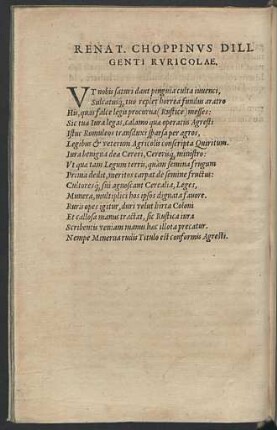 RENAT. CHOPPINVS DILI
GENTI RVRICOLAE.
VT nobis saturi dant pinguia culta iuuenci,
Sulcatusq́; tuo replet horrea fundus aratro
Hic, quas falce legis procurua, Rustice, messes:
Sic tua Iura legas, calamo quæ operarius Agresti
Istuc Romuleos transcunxi sparsa per agros,
Legibus & veterum Agricolis conscripta Quiritum.
Iura benigna dea Cereri, Cererisq́; ministro:
Vt qua tam Legum terris, quàm semina frugum
Prima dedit, meritos carpat de semine fructus:
Cultoresq́; sui agnoscant Cerealia, Leges,
Munera, multiplici hos ipsos dignata fauore.
Ruris opes igitur, duri velut hirta Coloni
Et callosa manus tractat, sic Rustica iura
Scribentis veniam manus hæc illota precatur.
Nempe Minerua rudis Titulo est conformis Agresti.